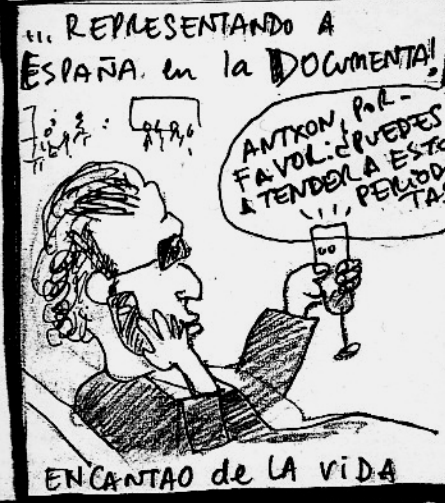 ... REPRESENTANDO A
ESPAÑA en la DOCUMENTA!
ANTXON, POR-
FAVOR: ¿PUEDES
ATENDER A ESTO
PERIOD
TAS
ENCANTAO de LA ViDA